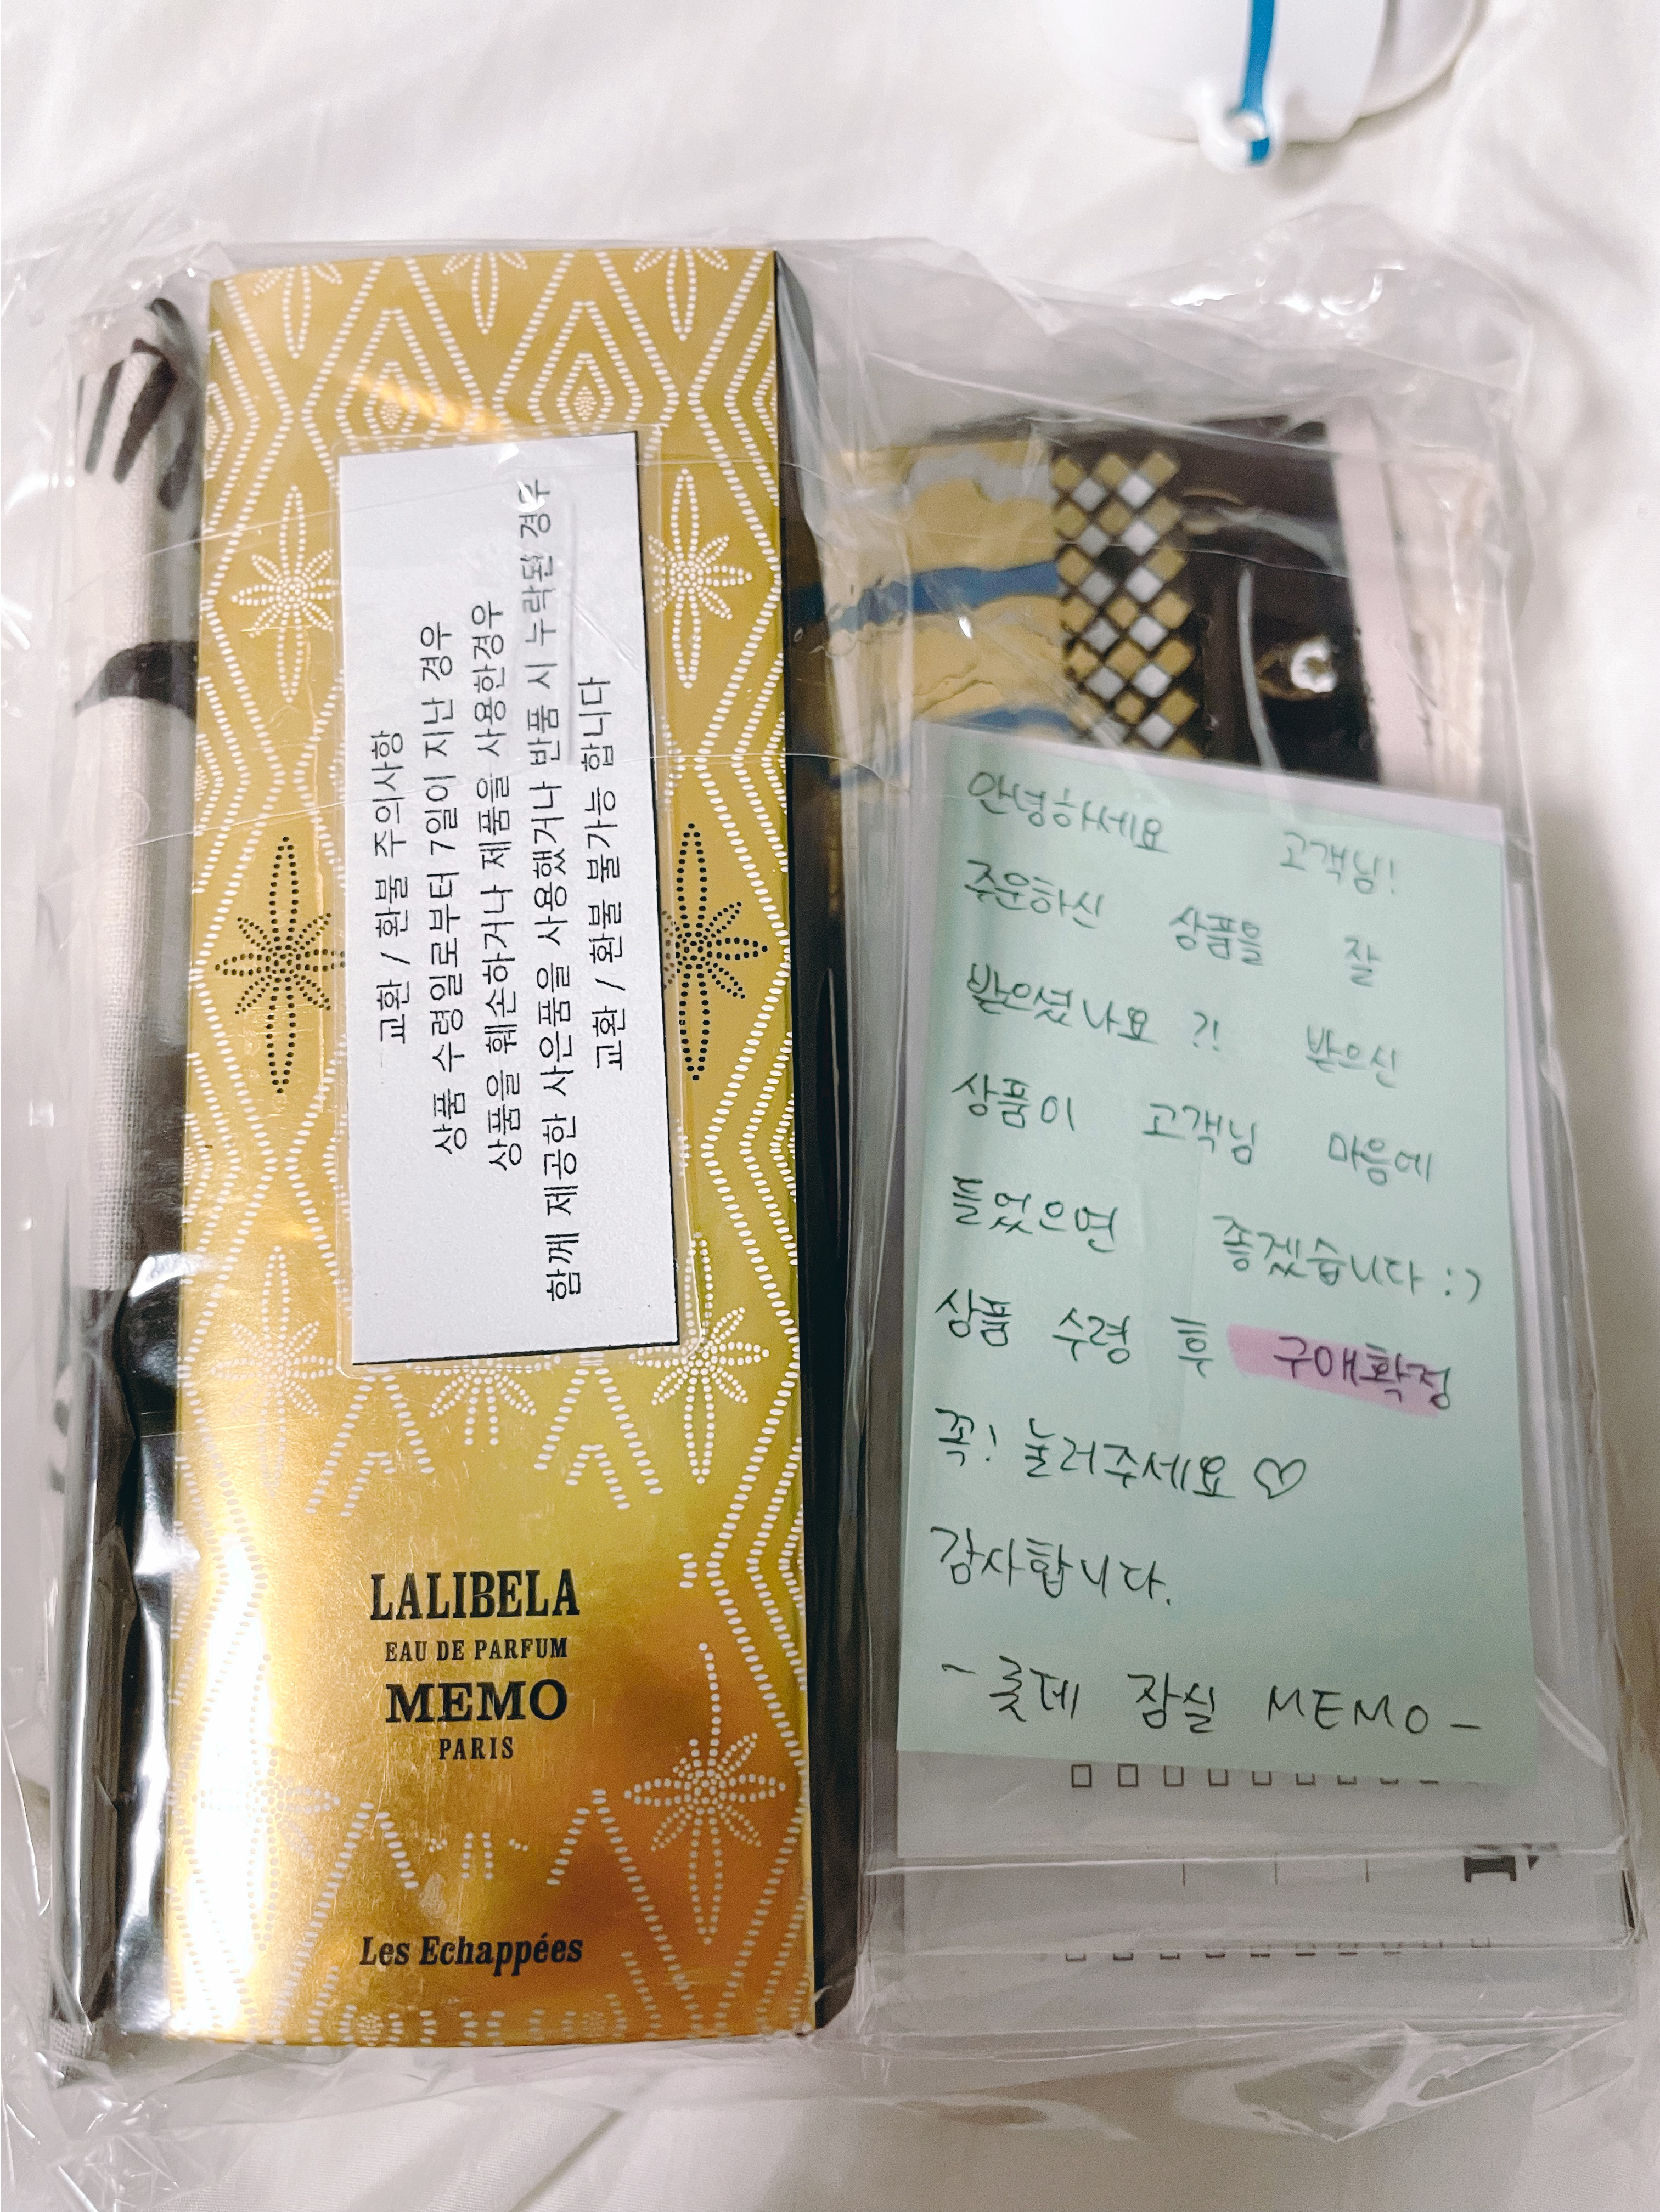 교환 / 환불 주의사항
상품 수령일로부터 7일이 지난 경우
상품을 훼손하거나 제품을 사용한경우
함께 제공한 사은품을 사용했거나 반품 시 누락된 경우
교환 / 환불 불가능 합니다
LALIBELA
EAU DE PARFUM
MEMO
PARIS
Les Echappées
안녕하세요 고객님!
주문하신 상품을 잘
받으셨나요?! 받으신
상품이 고객님 마음에
들었으면 좋겠습니다 :)
상품 수령 후 구매확정
꼭! 눌러주세요♡
감사합니다.
- 롯데 잠실 MEMO -